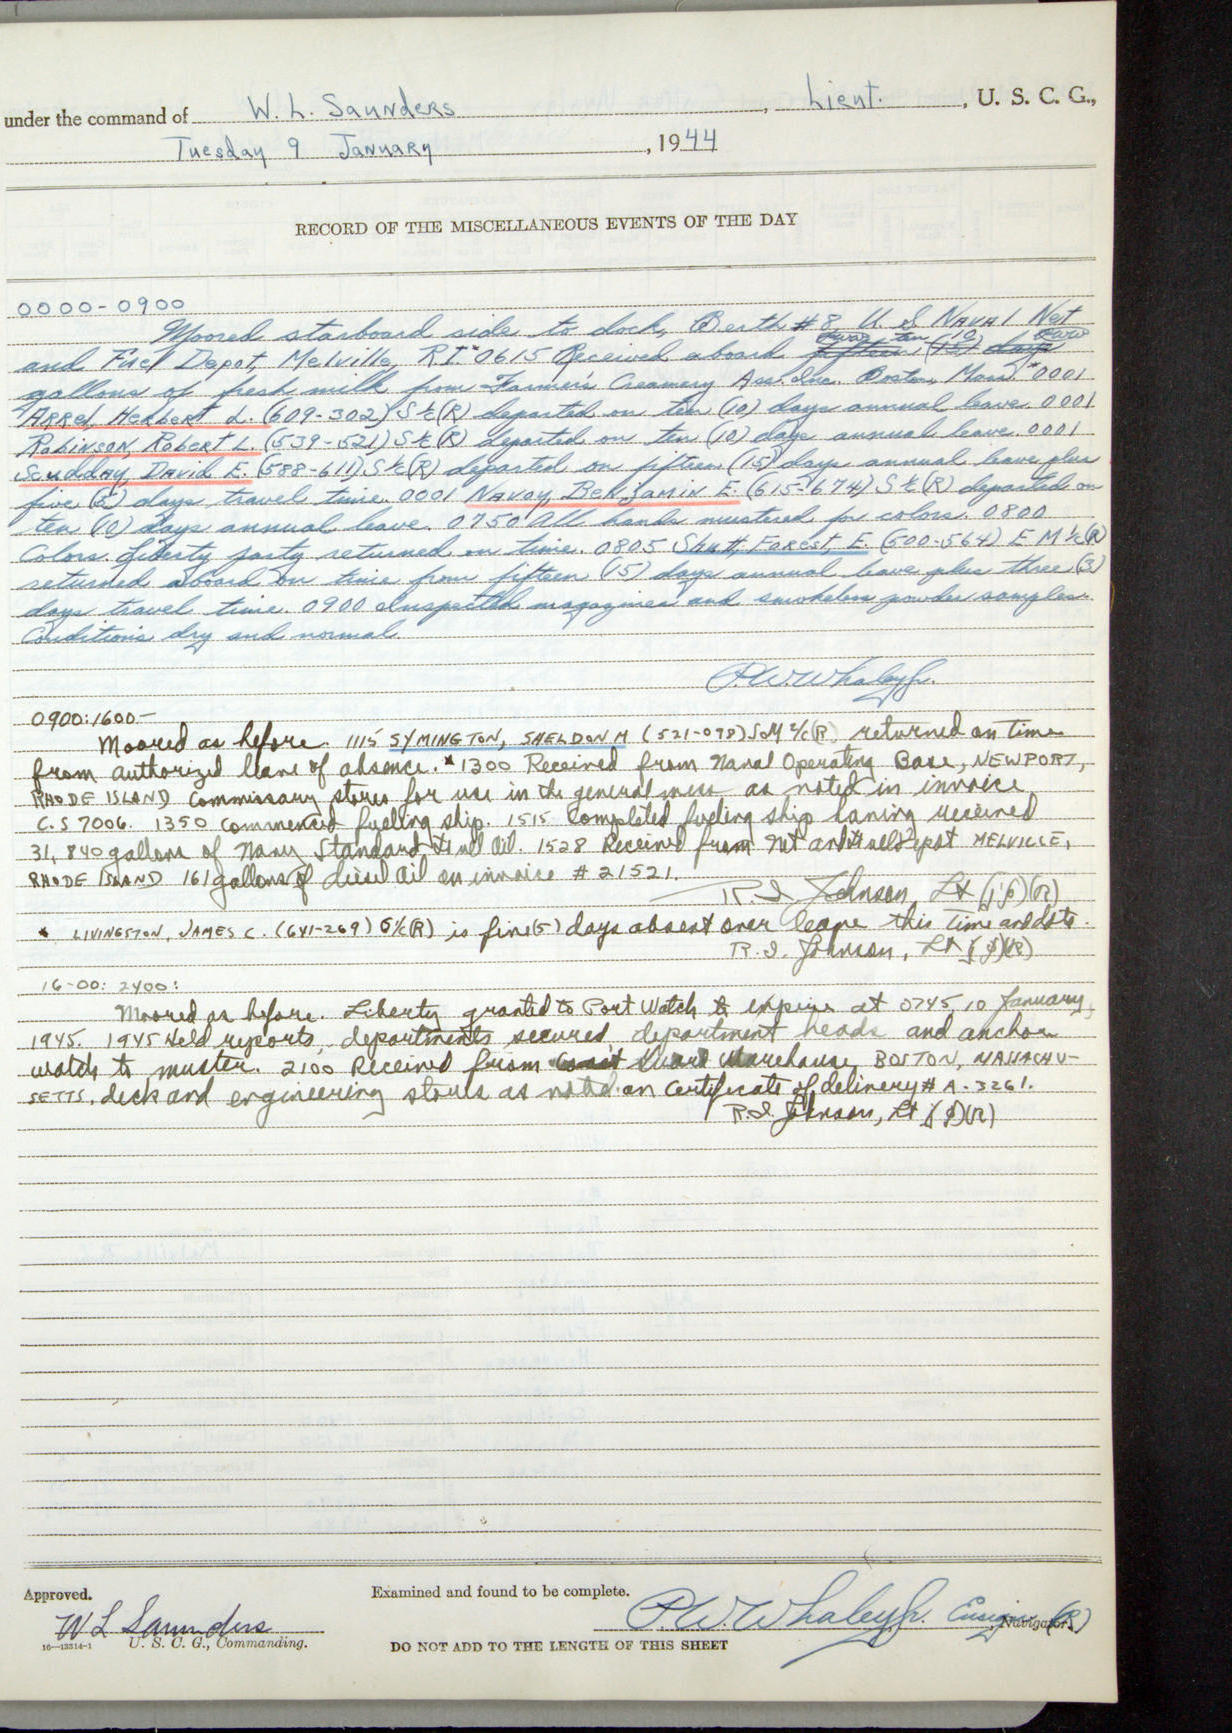 under the command of W. L. Saunders, Lieut., U. S. C. G.,
Tuesday 9 January, 1944
RECORD OF THE MISCELLANEOUS EVENTS OF THE DAY
0000-0900
Moored starboard side to dock, Berth #8, U. S Naval Net
and Fuel Depot, Melville, R.I. 0615 Received aboard fifteen (15) days
ten 10
gallons of fresh milk from Farmer's Creamery Ass. Inc. Boston, Mass. *0001
Herbert L. (609-302) S1/c(R) departed on ten (10) days annual leave. 0001
Robinson, Robert L. (539-521) S1/c(R) departed on ten (10) days annual leave. 0001
Scudday, David E. (588-611) S1/c(R) departed on fifteen (15) days annual leave plus
five (5) days travel time. 0001 Navoy, Benjamin E. (615-674) S1/c(R) departed on
ten (10) days annual leave. 0750 All hands mustered for colors. 0800
Colors. Liberty party returned on time. 0805 Shutt, Forest, E. (500-564) E M 1/c(R)
returned aboard on time from fifteen (15) days annual leave plus three (3)
days travel time. 0900 Inspected magazines and smokeless powder samples.
Conditions dry and normal.
P.W. Whaley Jr.
0900:1600-
Moored as before. 1115 SYMINGTON, SHELDON M (521-098) SoM 2/c(R) returned on time
from authorized leave of absence. * 1300 Received from Naval Operating Base, NEWPORT,
RHODE ISLAND commissary stores for use in the general mess as noted in invoice
C.S 7006. 1350 commenced fuelling ship. 1515 Completed fueling ship having received
31,840 gallons of Navy Standard Fuel Oil. 1528 Received from Net and Fuel Depot MELVILLE,
RHODE ISLAND 161 gallons of diesel oil on invoice # 21521.
R. I. Johnson Lt (jg)(R)
* LIVINGSTON, JAMES C. (641-269) S1/c(R) is five (5) days absent over leave this time and date.
R. I. Johnson, Lt (jg)(R)
16-00: 2400:
Moored as before. Liberty granted to Port Watch to expire at 0745, 10 January,
1945. 1945 Held reports, departments secured, department heads and anchor
watch to muster. 2100 Received from Coast Guard Warehouse, BOSTON, MASSACHU-
SETTS, deck and engineering stores as noted on Certificate of delivery # A-3261.
R. I. Johnson, Lt (jg)(R)
Approved. Examined and found to be complete.
W L Saunders P.W. Whaley Jr. Ensign (R), Navigator.
16—13314-1 U. S. C. G., Commanding.
DO NOT ADD TO THE LENGTH OF THIS SHEET